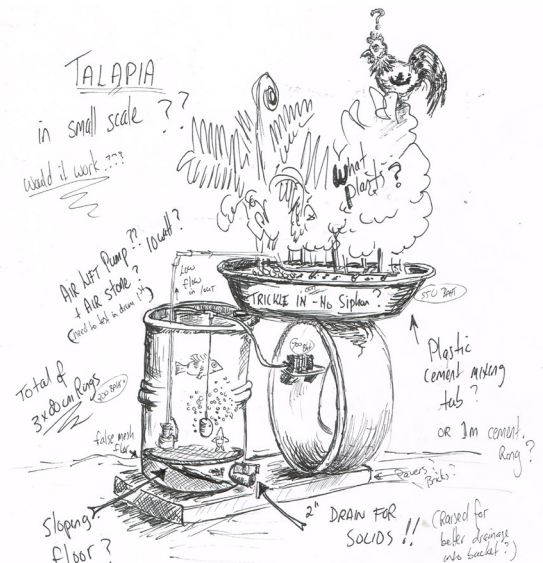 ?
TALAPIA
in small scale ??
would it work???
What
plants?
AIR LIFT Pump?? 10watt?
+ AIR stone?
(need to test in drum 1st)
LOW
flow
in /out
TRICKLE IN - NO Siphon?
550 BAHT
Total of
3x80cm Rings
200 BAHT
Plastic
cement mixing
tub?
OR 1m cement
Ring?
false mesh
floor
Pavers?
Bricks?
Sloping?
floor?
2" DRAIN FOR
SOLIDS !!
(Raised for
better drainage
into bucket?)